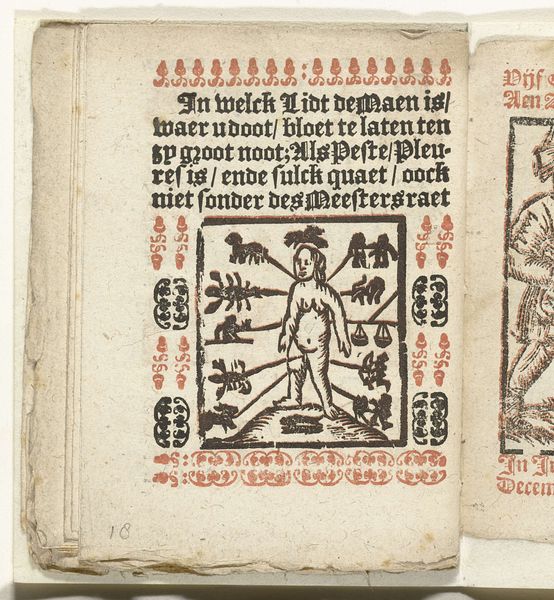 In welck Lidt de Maen is/
waer u doot/ bloet te laten ten
zy groot noot; Als Peste/ Pleu-
res is/ ende sulck quaet/ oock
niet sonder des Meesters raet
Vijf
Aen A
In I
Decem
18